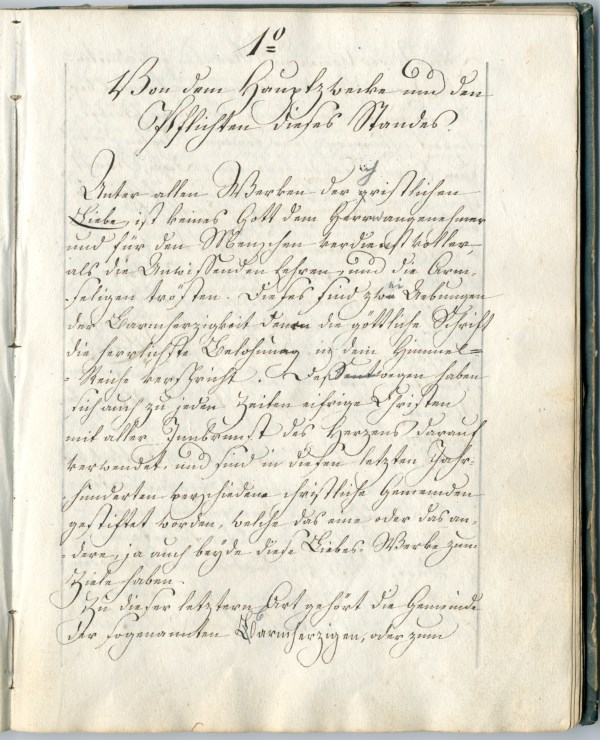 1º
Von dem Hauptzwecke und den
Pflichten dieses Standes.
Unter allen Werken der christlichen
Liebe ist keines Gott dem Herrn angenehmer
und für den Menschen verdienstvoller,
als die Unwissenden lehren, und die Arm-
seligen trösten. Dieses sind zwei Uebungen
der Barmherzigkeit denen die göttliche Schrift
die herrlichste Belohnung in dem Himmel=
=Reiche verspricht. Dessentwegen haben
sich auch zu jeden Zeiten eifrige Christen
mit aller Innbrunst des Herzens darauf
verwendet, und sind in diesen letzten Jahr-
hunderten verschiedene christliche Gemeinden
gestiftet worden, welche das eine oder das an-
dere, ja auch beyde diese Liebes-Werke zum
Ziele haben.
Zu dieser letztern Art gehört die Gemeinde
der sogenannten Barmherzigen, oder zum